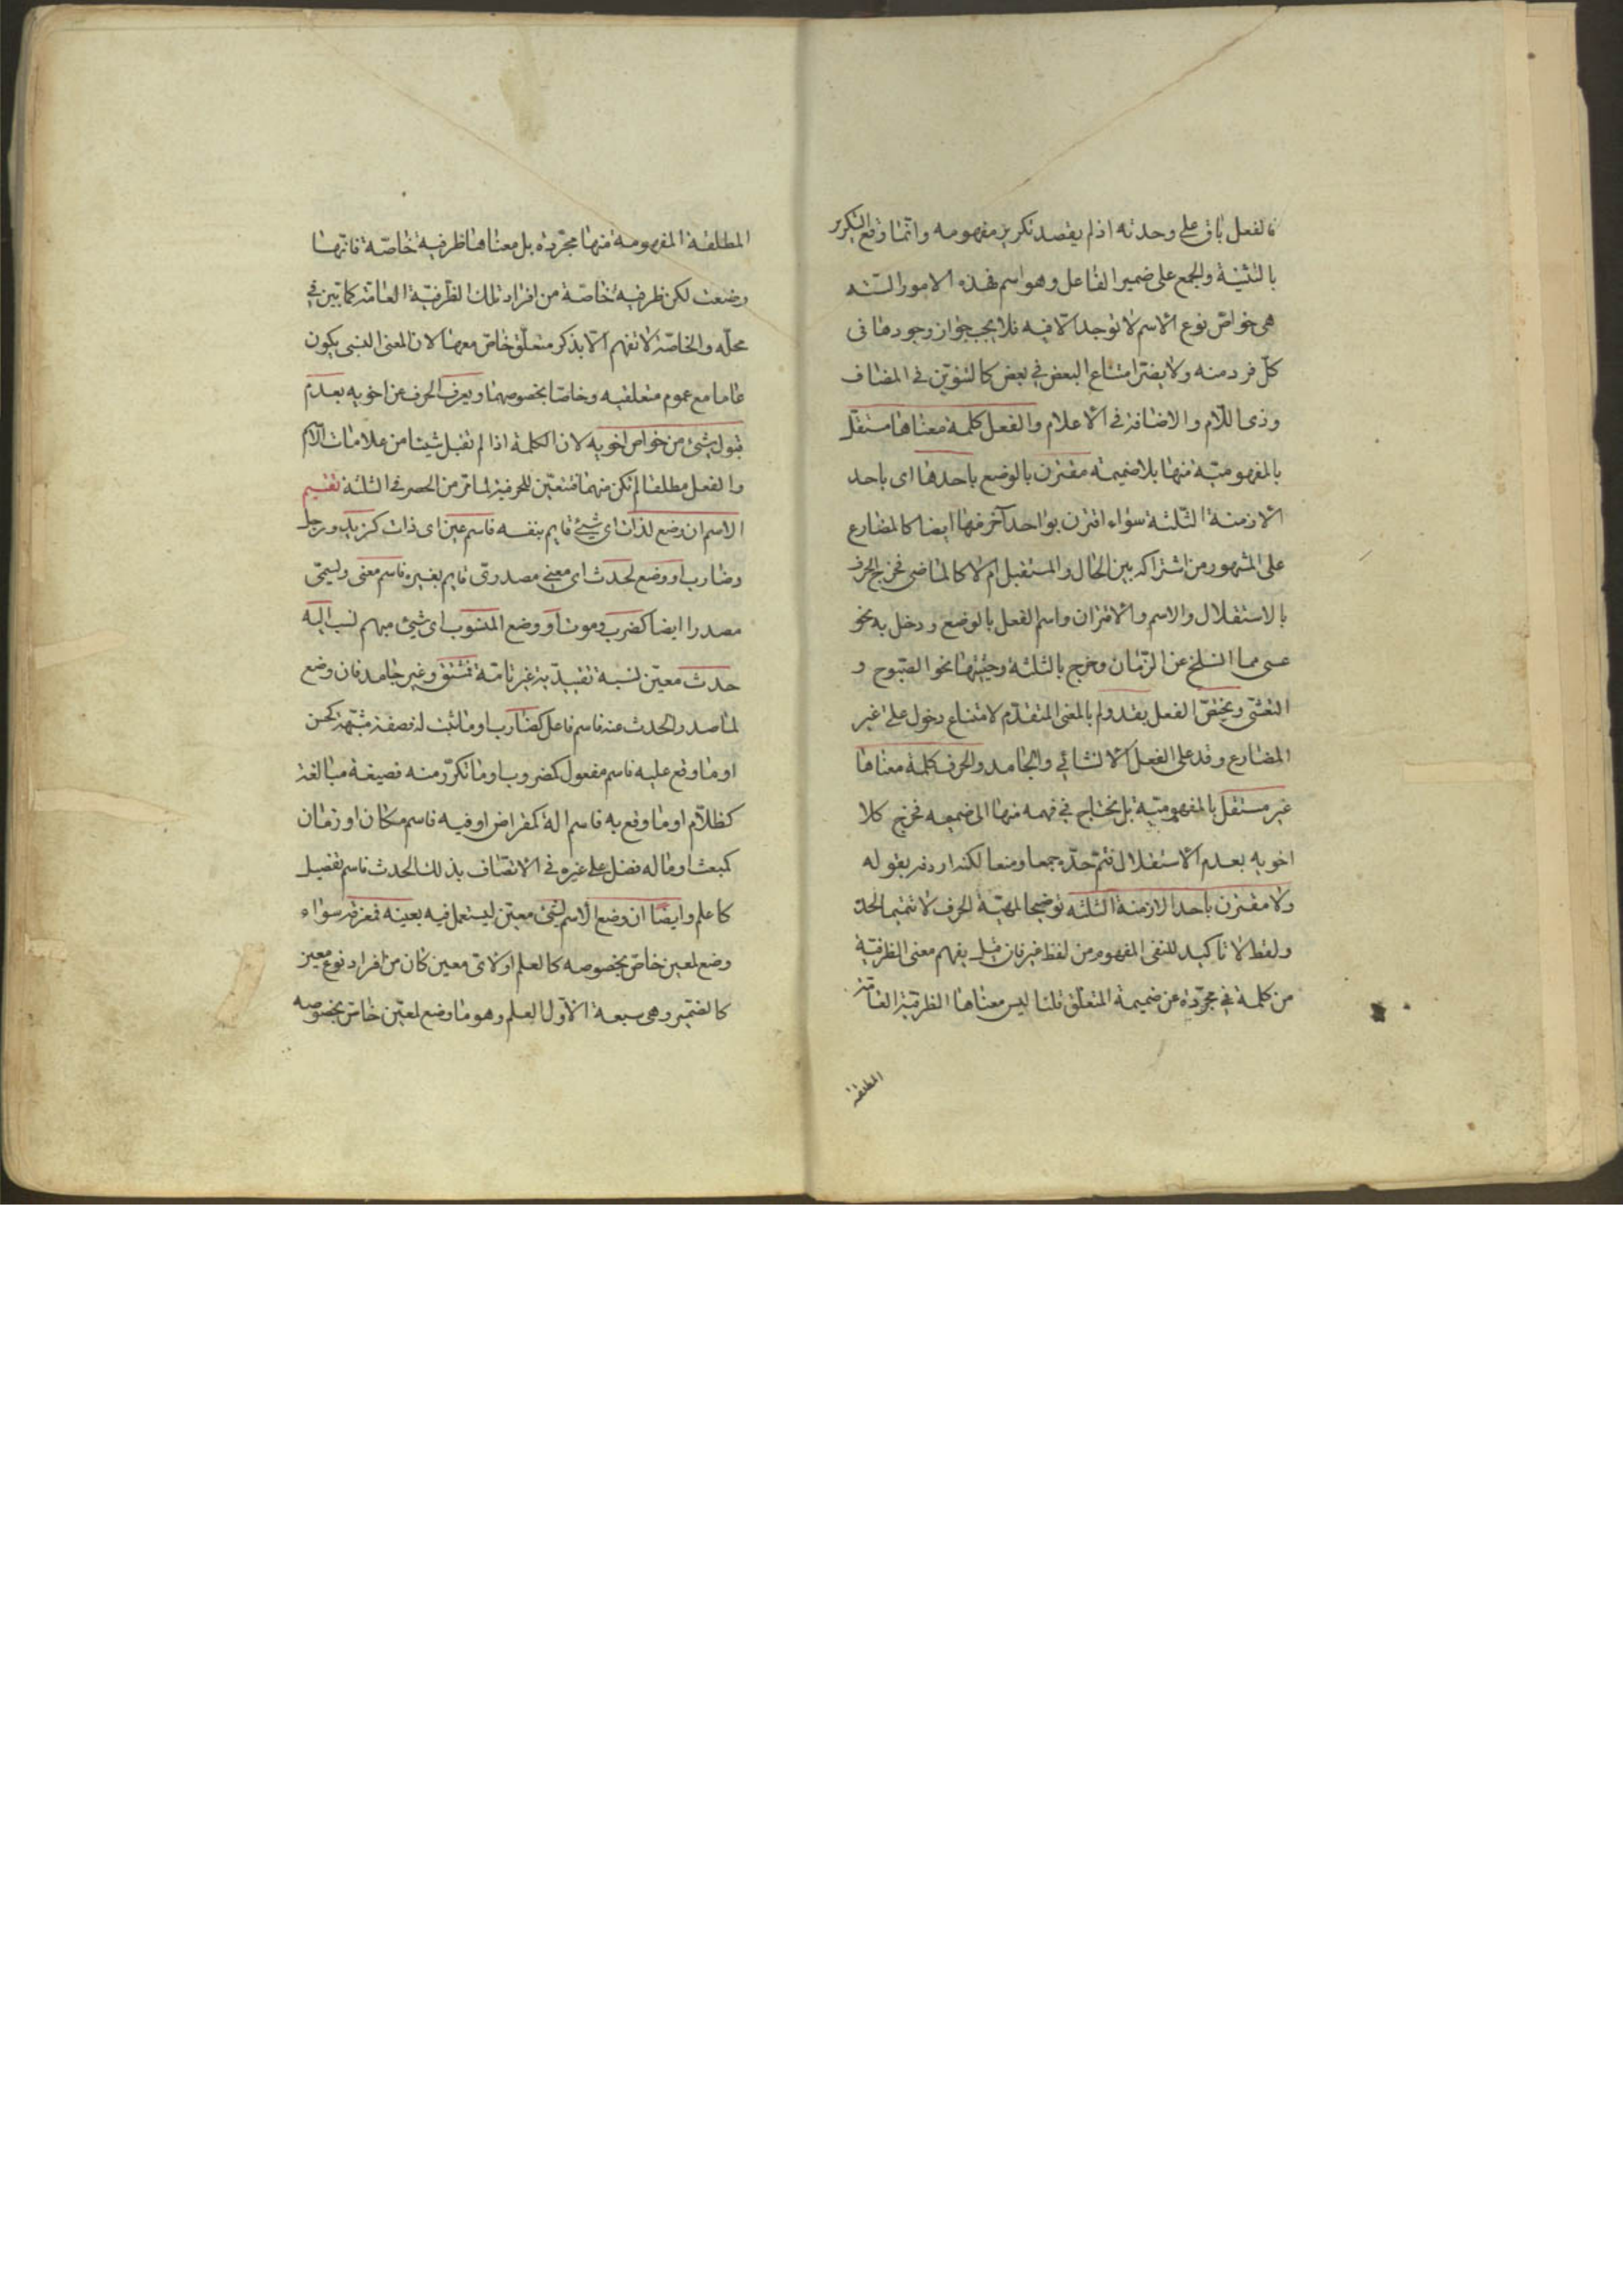 فالفعل باق على وحدته اذ لم يقصد تكرير مفهومه وانّما وقع التكرير
بالتثنية والجمع على ضمير الفاعل وهو اسم فهذه الامور الستّه
هى خواصّ نوع الاسم لا توجد الّا فيه فلا يجب جواز وجودها فى
كلّ فرد منه ولا يضرّ امتناع البعض فى بعض كالتنوين فى المضاف
وذى اللّام والاضافة فى الاعلام والفعل كلمة معناها مستقلّ
بالمفهوميّة منها بلا ضميمة مقترن بالوضع باحدها اى باحد
الازمنة الثّلثة سواء اقترن بواحد آخر منها ايضا كالمضارع
على المشهور من اشتراكه بين الحال والمستقبل ام لا كالماضى فخرج الحرف
بالاستقلال والاسم والاقتران واسم الفعل بالوضع ودخل به نحو
عسى مما انسلخ عن الزّمان وخرج بالثلثة وحيثها نحو الصّبوح و
التعشّى ويختصّ الفعل بقد ولم بالمعنى المتقدّم لامتناع دخول على غير
المضارع وقد على الفعل الانشائى والجامد والحرف كلمة معناها
غير مستقل بالمفهوميّة بل يحتاج فى فهمه منها الى ضميمه فخرج كلا
اخويه بعدم الاستقلال فتمّ حدّه جمعا ومنعا لكنه اردفه بقوله
ولا مقترن باحد الازمنة الثلثه توضيحا لمهيّة الحرف لا تتميما لحدّ
ولفظ لا تاكيد للنفى المفهوم من لفظ غير فان قيل يفهم معنى الظرفيّة
من كلمة فى مجرّدة عن ضميمة المتعلّق قلنا ليس معناها الظرفيّة العامّة
المطلقة
المطلقة المفهومة منها مجرّدة بل معناها ظرفية خاصّة فانّها
وضعت لكن ظرفية خاصّة من افراد تلك الظّرفيّة العامّة كما بيّن فى
محلّه والخاصّة لا تفهم الّا بذكر متعلّق خاصّ معها لان المعنى النسبى يكون
عاما مع عموم متعلقيه وخاصّا بخصوصهما ويعرف الحرف عن اخويه بعدم
قبول شىء من خواص اخويه لان الكلمة اذا لم تقبل شيئا من علامات الاسم
والفعل مطلقا لم تكن منهما فتتعيّن للحرفية لما مرّ من الحصر فى الثلثة تقسيم
الاسم ان وضع لذات اى شىء قايم بنفسه فاسم عين اى ذات كزيد ورجل
وضارب او وضع لحدث اى معنى مصدرىّ قايم بغيره فاسم معنى ويسمّى
مصدرا ايضا كضرب وموت او وضع المنسوب اى شىء مبهم نسب اليه
حدث معيّن نسبة تقييديّة غير تامّة فمشتق وغير جامد فان وضع
لما صدر الحدث عنه فاسم فاعل كضارب او ما ثبت له فصفة مشبّهة كحسن
او ما وقع عليه فاسم مفعول كمضروب او ما تكرّر منه فصيغة مبالغة
كظلّام او ما وقع به فاسم الة كمقراض او فيه فاسم مكان او زمان
كمبعث او ما له فضل على غيره فى الاتّصاف بذلك الحدث فاسم تفضيل
كاعلم وايضا ان وضع الاسم لشىء معيّن ليستعمل فيه بعينه فمعرفة سواء
وضع لمعين خاصّ بخصوصه كالعلم او لاىّ معين كان من افراد نوع معين
كالضّمير وهى سبعة الاوّل العلم وهو ما وضع لمعيّن خاصّ بخصوصه